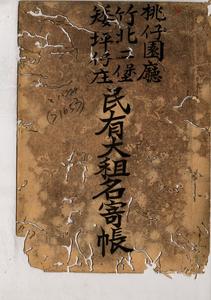 桃仔園廳
竹北二堡
矮坪仔庄
民有大租名寄帳